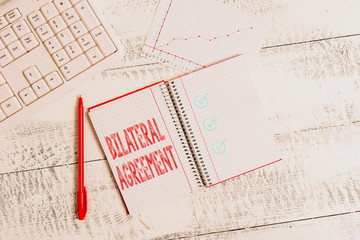 BILATERAL
AGREEMENT